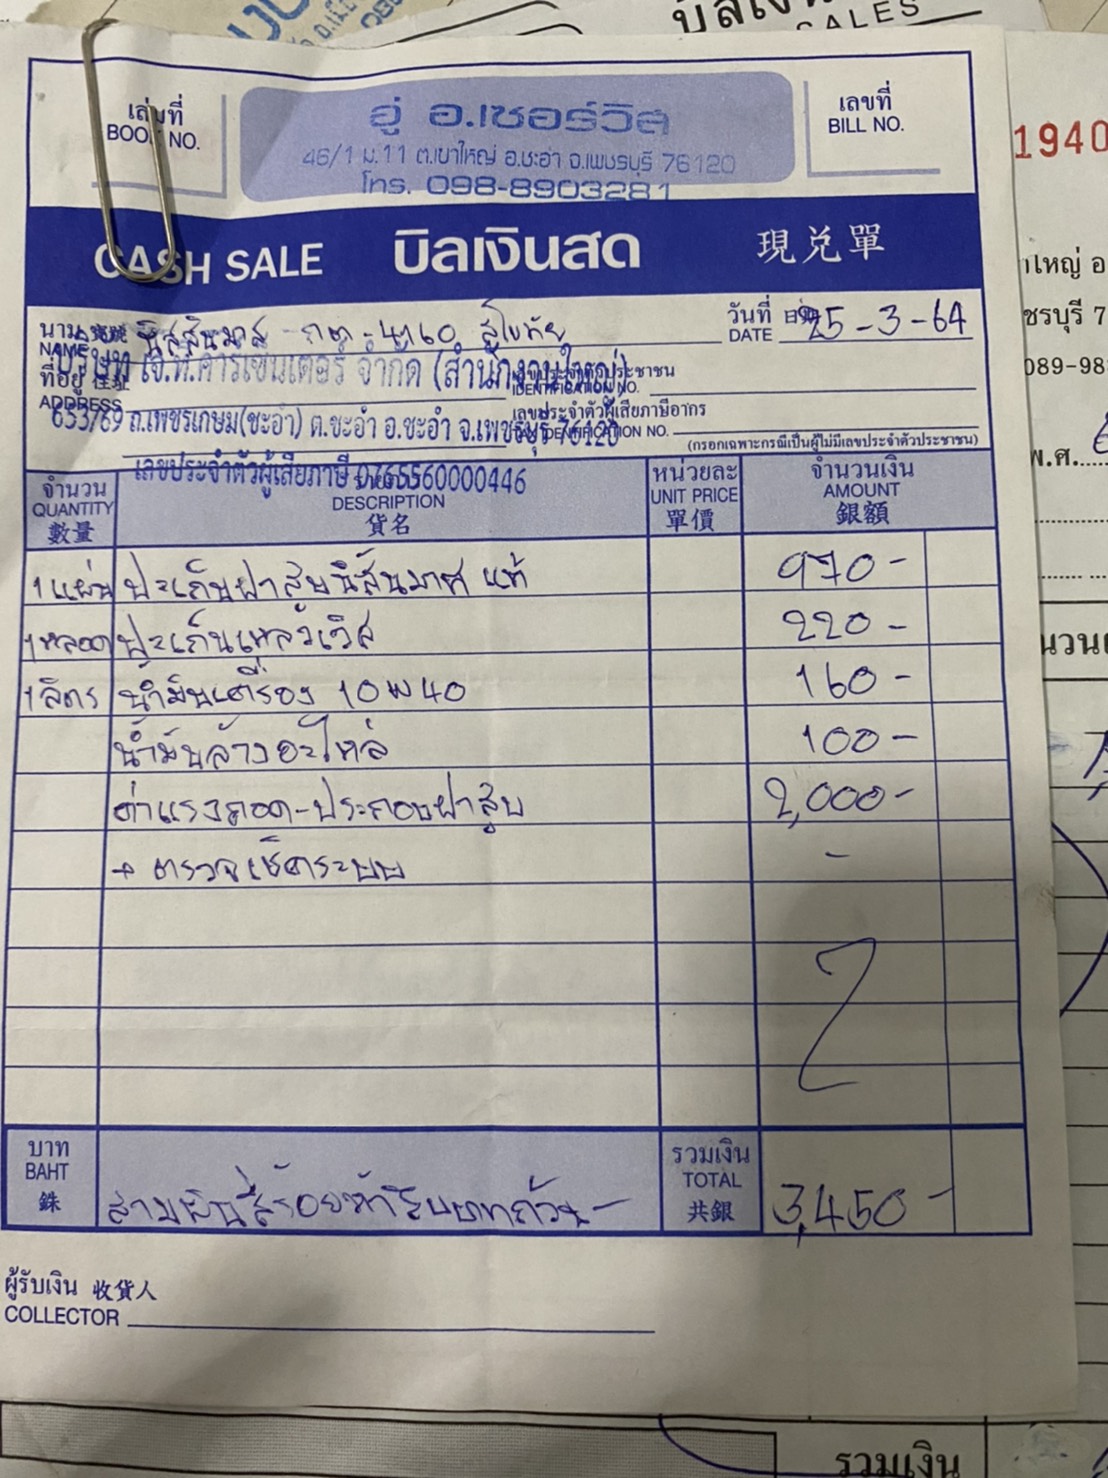 บิลเงินสด
SALES
เล่มที่
BOOK NO.
อู่ อ.เซอร์วิส
46/1 ม.11 ต.เขาใหญ่ อ.ชะอำ จ.เพชรบุรี 76120
โทร. 098-8903281
เลขที่
BILL NO.
1940
CASH SALE บิลเงินสด 現兑單
นาม นิสสันมาส กต-4160 สุโขทัย
NAME
วันที่ 25-3-64
DATE
บริษัท เจ.ที.คาร์เซ็นเตอร์ จำกัด (สำนักงานใหญ่)
ที่อยู่ 住址
ADDRESS
IDENTIFICATION NO.
เลขประจำตัวผู้เสียภาษีอากร
653/69 ถ.เพชรเกษม(ชะอำ) ต.ชะอำ อ.ชะอำ จ.เพชรบุรี 76120
(กรอกเฉพาะกรณีเป็นผู้ไม่มีเลขประจำตัวประชาชน)
เลขประจำตัวผู้เสียภาษี 0765560000446
จำนวน
QUANTITY
數量
DESCRIPTION
貨名
หน่วยละ
UNIT PRICE
單價
จำนวนเงิน
AMOUNT
銀額
1 แผ่น ปะเก็นฝาสูบนิสสันมาส แท้ 970-
1 หลอด ปะเก็นเหลวเวิส 220-
1 ลิตร น้ำมันเครื่อง 10W40 160-
น้ำมันล้างอะไหล่ 100-
ค่าแรงถอด-ประกอบฝาสูบ 2,000-
+ ตรวจเช็คระบบ -
บาท
BAHT
銖
สามพันสี่ร้อยห้าสิบบาทถ้วน-
รวมเงิน
TOTAL
共銀
3,450-
ผู้รับเงิน 收貨人
COLLECTOR
รวมเงิน